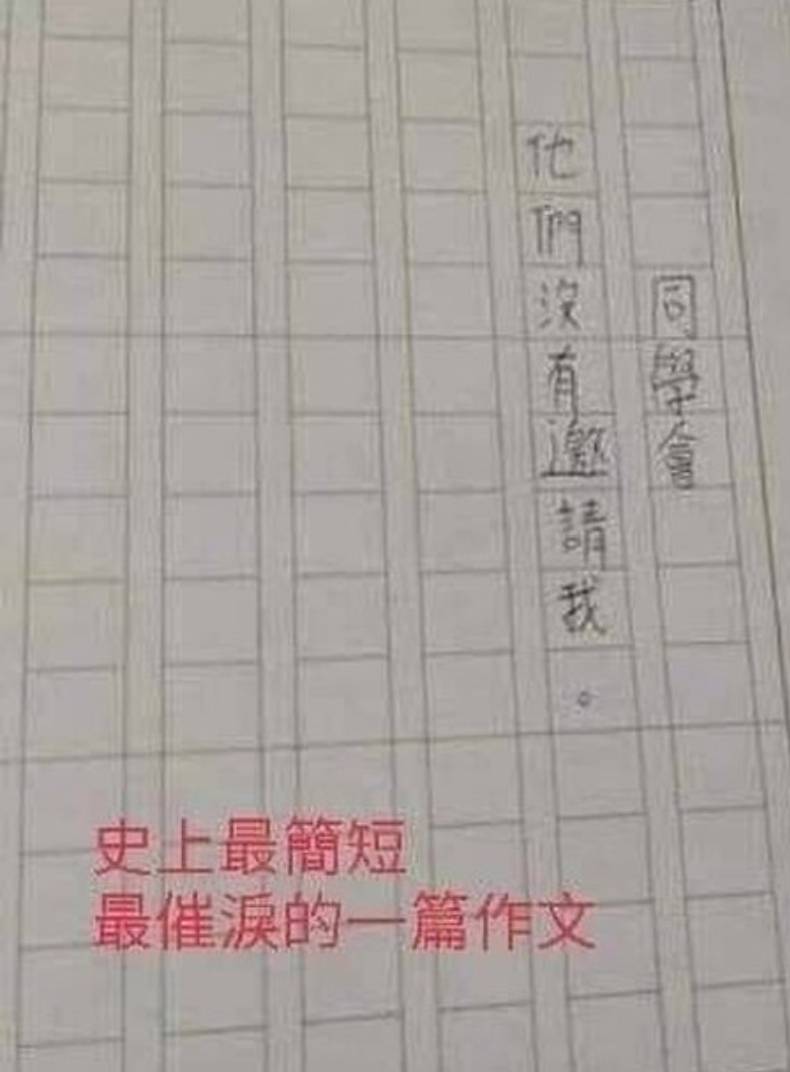 同學會
他們沒有邀請我。
史上最簡短
最催淚的一篇作文